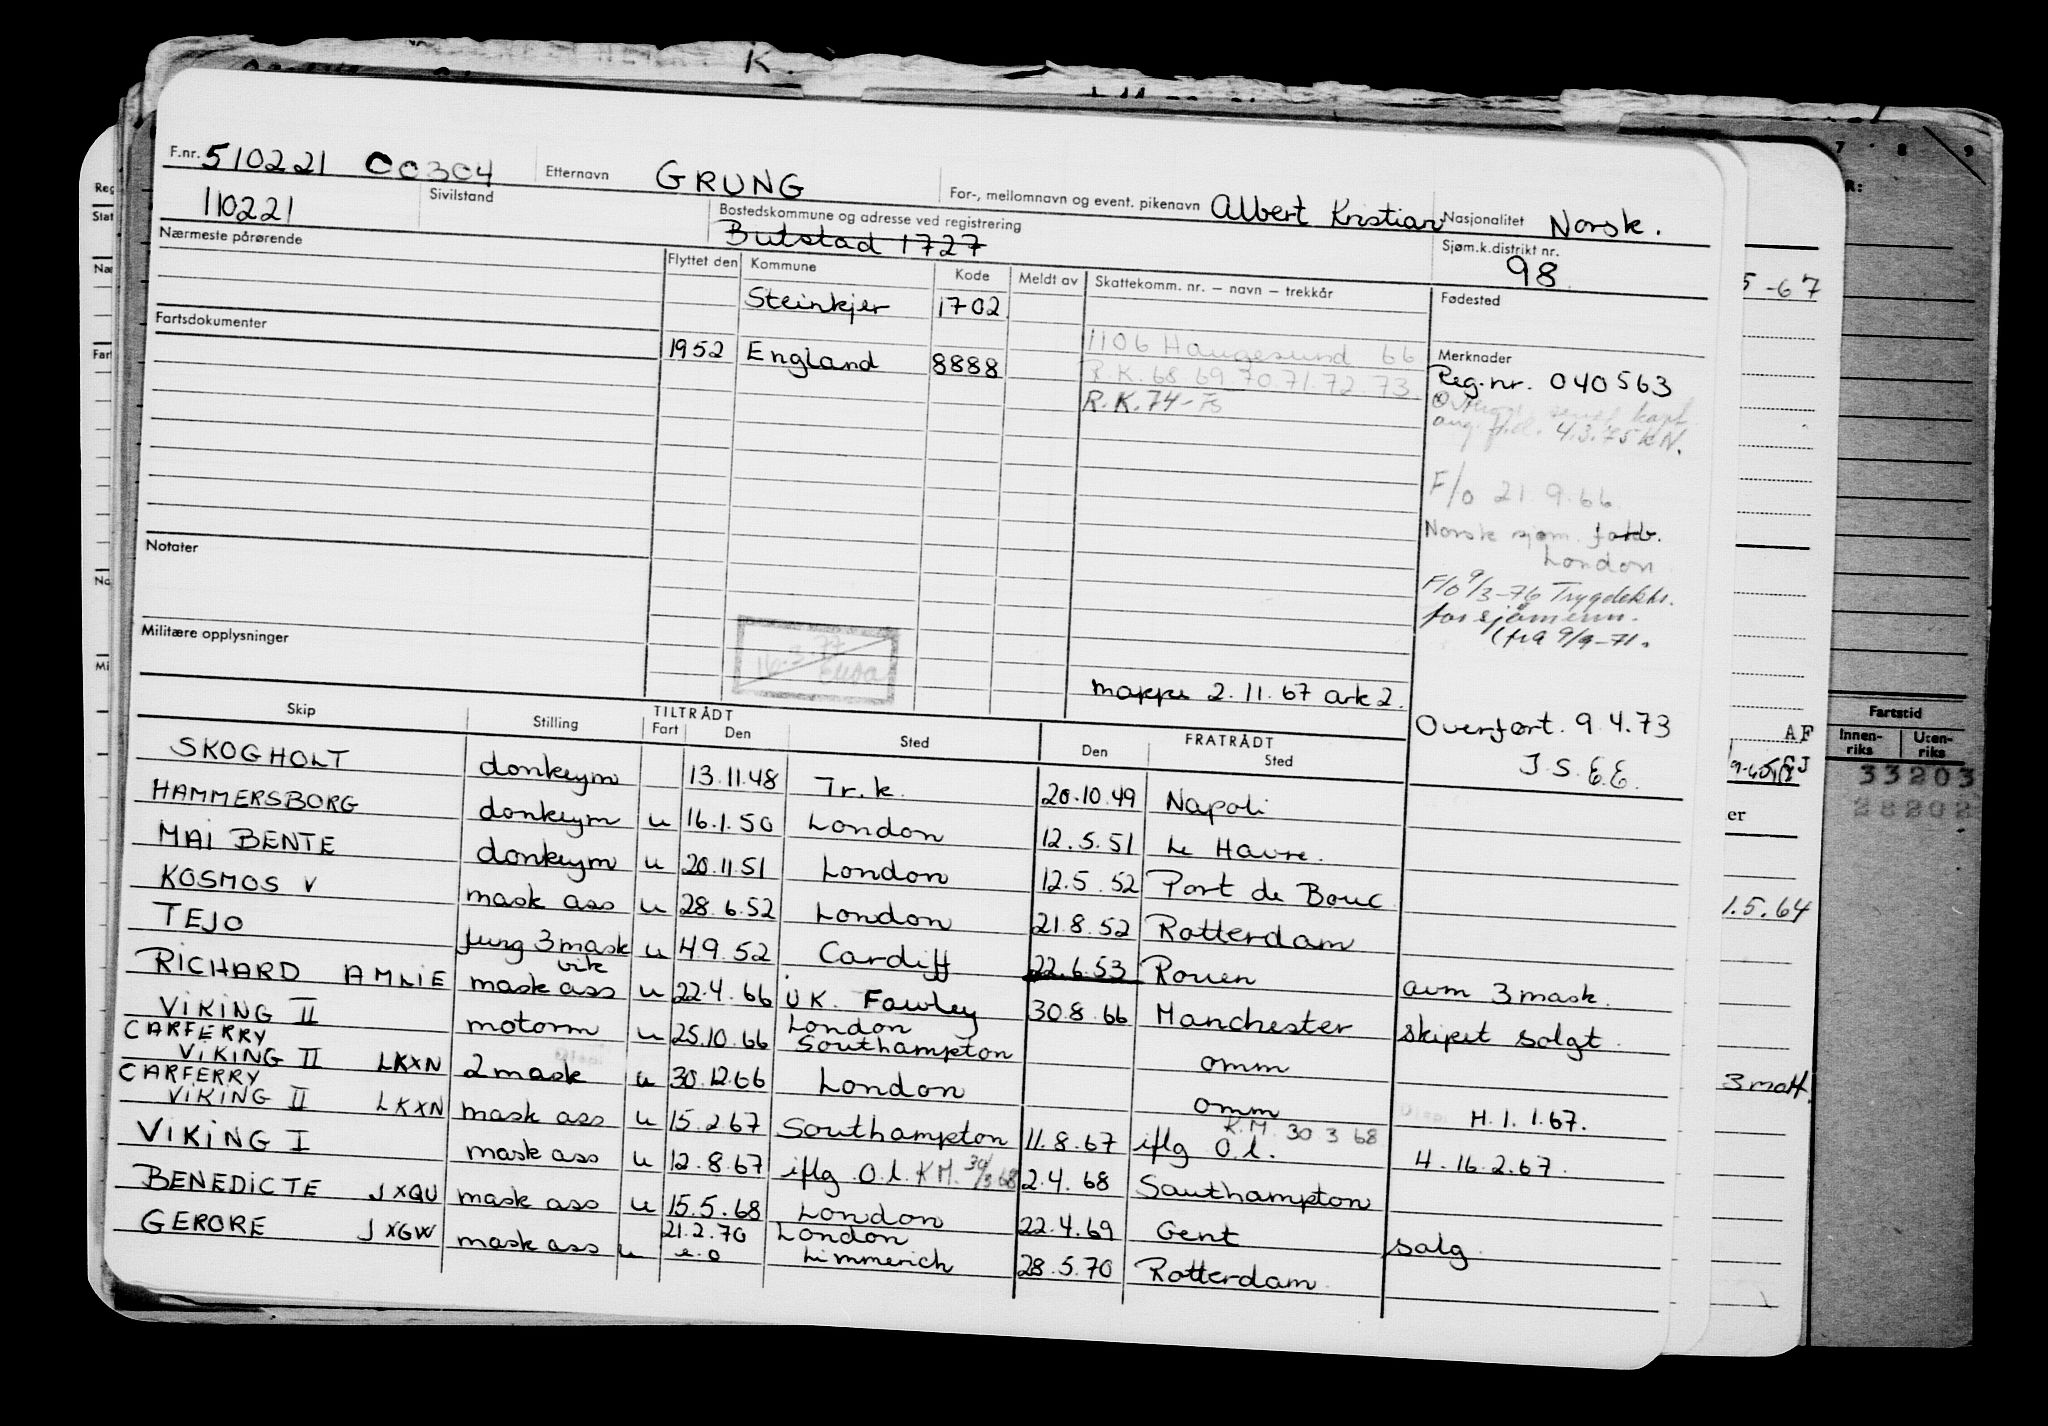 K.
F.nr. 510221 00304 Etternavn GRUNG For-, mellomnavn og event. pikenavn Albert Kristian Nasjonalitet Norsk.
110221 Sivilstand Bostedskommune og adresse ved registrering Butstad 1727 Sjøm.k.distrikt nr. 98
Nærmeste pårørende Flyttet den Kommune Kode Meldt av Skattekomm. nr. – navn – trekkår Fødested
Steinkjer 1702
Fartsdokumenter 1952 England 8888 1106 Haugesund 66 Merknader
R.K. 68 69. 70. 71. 72. 73 Reg.nr. 040563
R.K. 74-75
4.3.75 KN.
F/o 21.9.66
Norsk sjøm. forb.
London
Notater
F/o 9/3-76 Trygdekt.
for sjømenn.
(fra 9/9-71.
Militære opplysninger
16.3.77
mappe 2.11.67 ark 2.
Overført. 9.4.73
J.S.E.E.
Skip Stilling TILTRÅDT Fart Den Sted FRATRÅDT Den Sted
SKOGHOLT donkeym 13.11.48 Tr.k. 20.10.49 Napoli
HAMMERSBORG donkeym u 16.1.50 London 12.5.51 Le Havre.
MAI BENTE donkeym u 20.11.51 London 12.5.52 Port de Bouc
KOSMOS V mask ass u 28.6.52 London 21.8.52 Rotterdam
TEJO fung 3 mask u 4.9.52 Cardiff 22.6.53 Rouen avm 3 mask.
RICHARD AMLIE vik mask ass u 22.4.66 U.K. Fawley 30.8.66 Manchester skipet solgt.
VIKING II motorm u 25.10.66 London Southampton omm
CARFERRY
VIKING II LKXN 2 mask u 30.12.66 London omm H.1.1.67.
CARFERRY
VIKING II LKXN mask ass u 15.2.67 Southampton 11.8.67 iflg O.l. K.M. 30 3 68 H.16.2.67.
VIKING I mask ass u 12.8.67 iflg O.l. KM. 30/3 68 2.4.68 Southampton
BENEDICTE JXQU mask ass u 15.5.68 London 22.4.69 Gent salg
GERORE JXGW mask ass u 21.2.70 e.o London Limmerich 28.5.70 Rotterdam
7 8 9
R:
5-67
Fartstid
AF Innen-riks Uten-riks
33203
28202
er
1.5.64
3 matt.